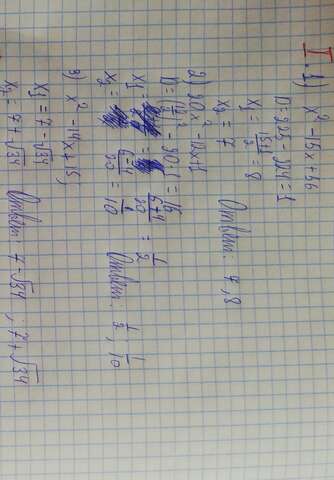 I. 1) x² - 15x + 56
D = 225 - 224 = 1
x₁ = (15+1)/2 = 8
x₂ = 7 Ответ: 7, 8
2) 20x² - 12x + 1
D = (12/2)² - 20·1 = 16
x₁ = (6+4)/20 = 1/2
x₂ = (6-4)/20 = 1/10 Ответ: 1/2, 1/10
3) x² - 14x + 15
x₁ = 7 - √34
x₂ = 7 + √34 Ответ: 7 - √34 ; 7 + √34